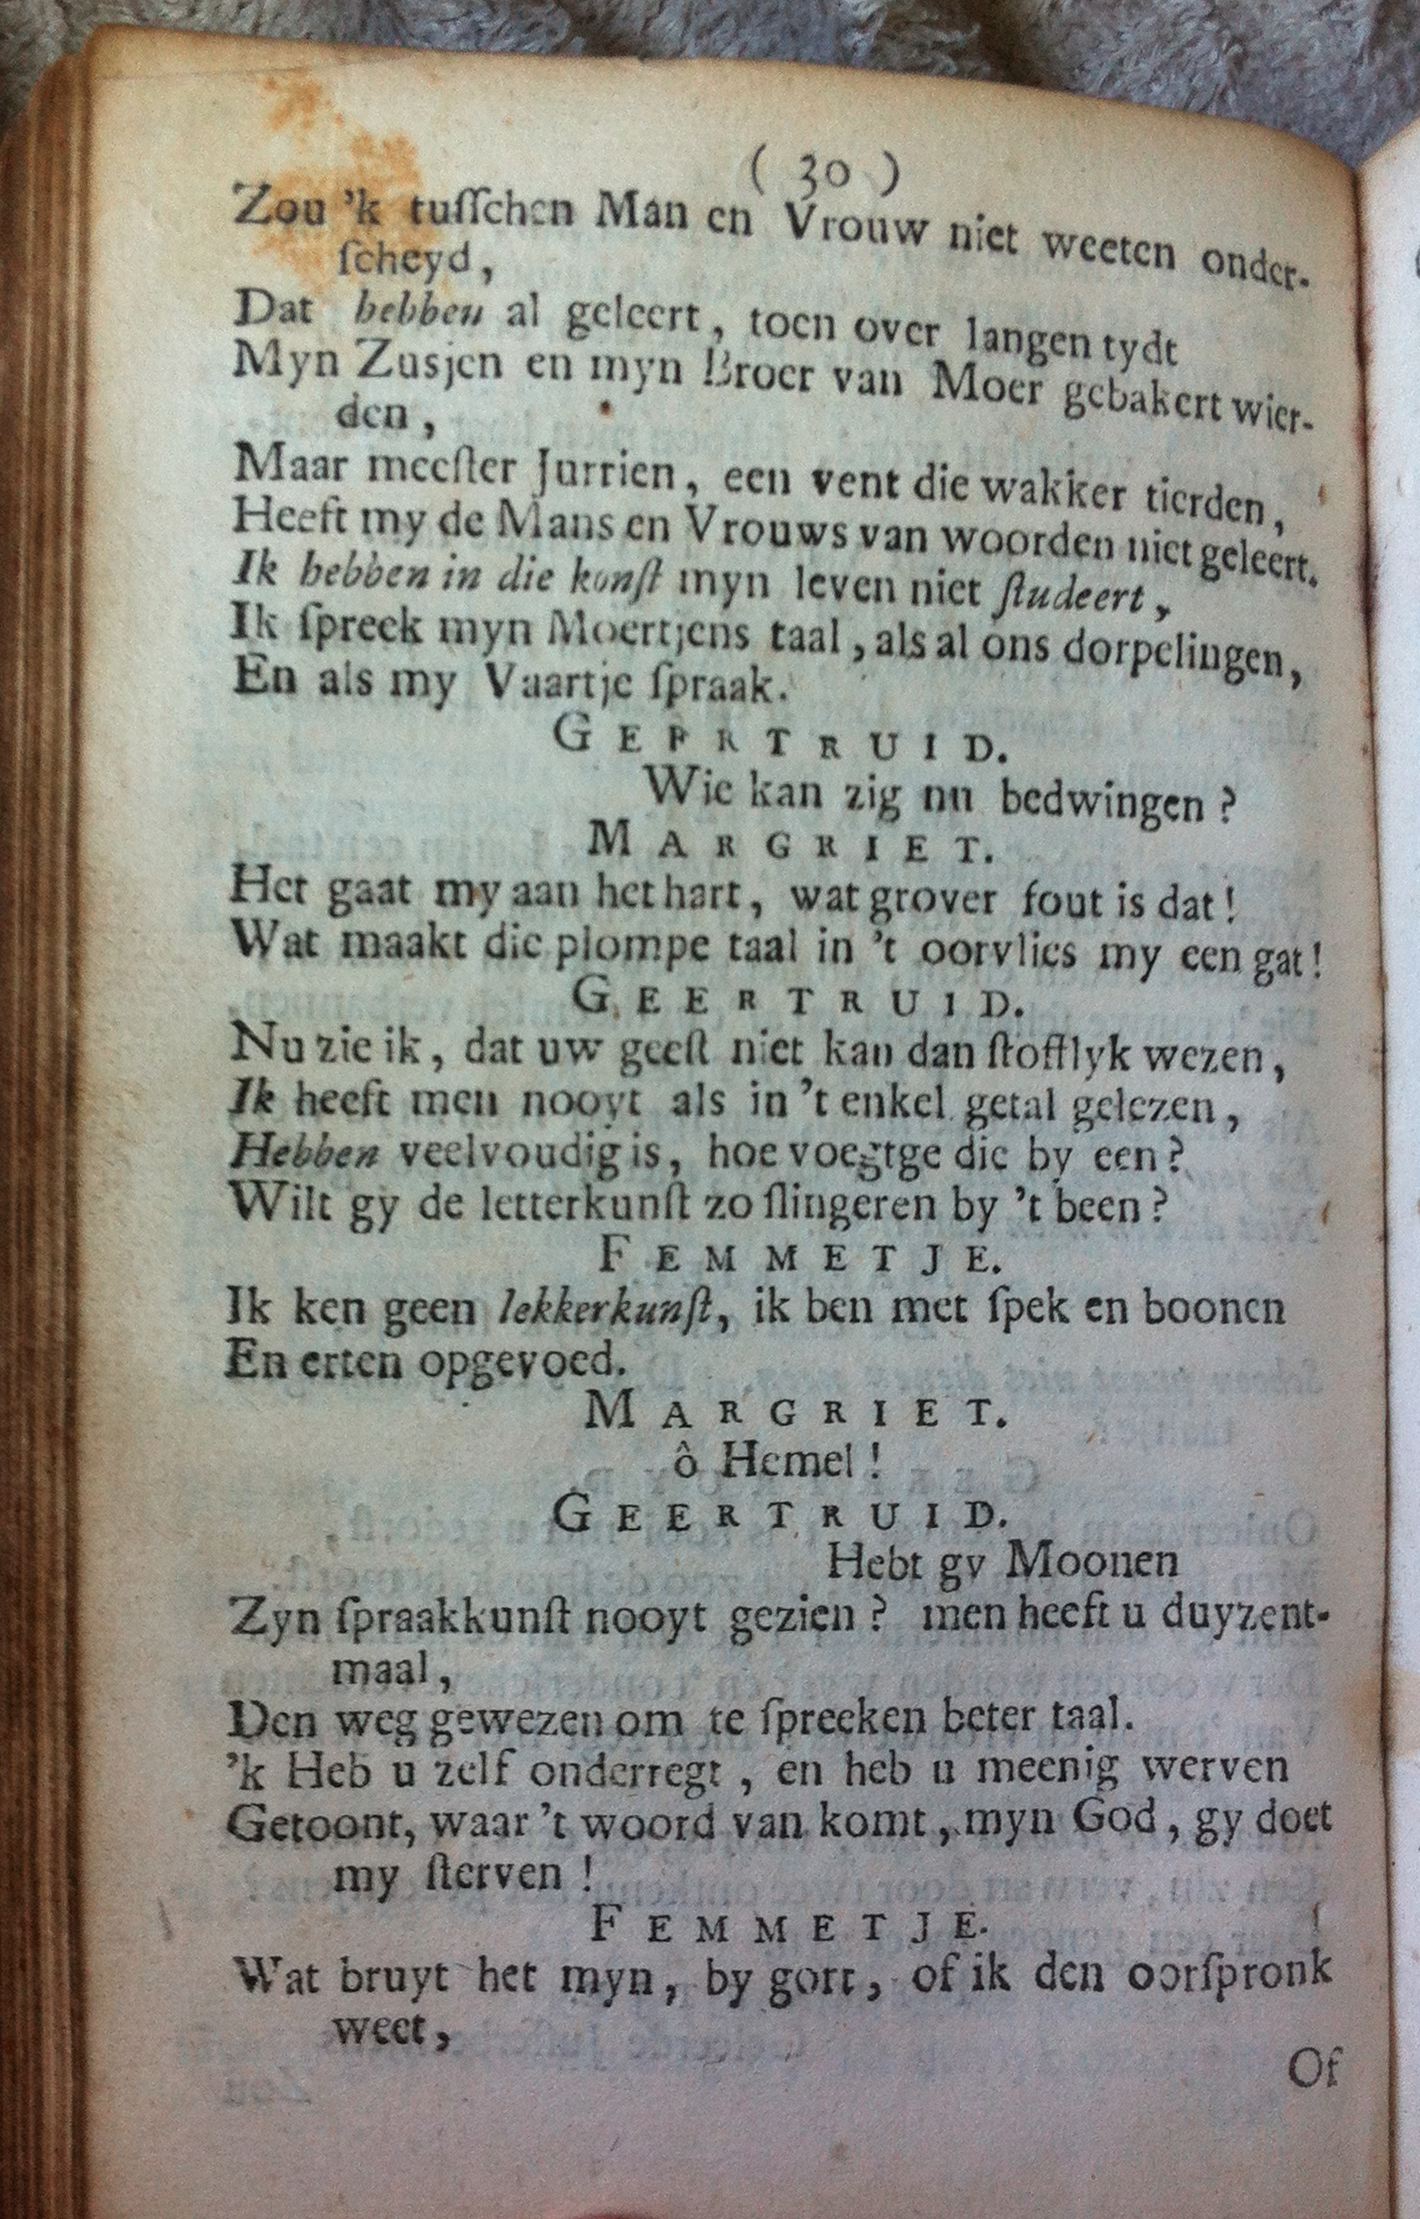 ( 30 )
Zou 'k tuſſchen Man en Vrouw niet weeten onder-
ſcheyd,
Dat hebben al geleert, toen over langen tydt
Myn Zusjen en myn Broer van Moer gebakert wier-
den,
Maar meeſter Jurrien, een vent die wakker tierden,
Heeft my de Mans en Vrouws van woorden niet geleert.
Ik hebben in die konſt myn leven niet ſtudeert,
Ik ſpreek myn Moertjens taal, als al ons dorpelingen,
En als my Vaartje ſpraak.
GEERTRUID.
Wie kan zig nu bedwingen?
MARGRIET.
Het gaat my aan het hart, wat grover fout is dat!
Wat maakt die plompe taal in 't oorvlies my een gat!
GEERTRUID.
Nu zie ik, dat uw geeſt niet kan dan ſtofflyk wezen,
Ik heeft men nooyt als in 't enkel getal gelezen,
Hebben veelvoudig is, hoe voegtge die by een?
Wilt gy de letterkunſt zo ſlingeren by 't been?
FEMMETJE.
Ik ken geen lekkerkunſt, ik ben met ſpek en boonen
En erten opgevoed.
MARGRIET.
ô Hemel!
GEERTRUID.
Hebt gy Moonen
Zyn ſpraakkunſt nooyt gezien? men heeft u duyzent-
maal,
Den weg gewezen om te ſpreeken beter taal.
'k Heb u zelf onderregt, en heb u meenig werven
Getoont, waar 't woord van komt, myn God, gy doet
my ſterven!
FEMMETJE.
Wat bruyt het myn, by gort, of ik den oorſpronk
weet,
Of